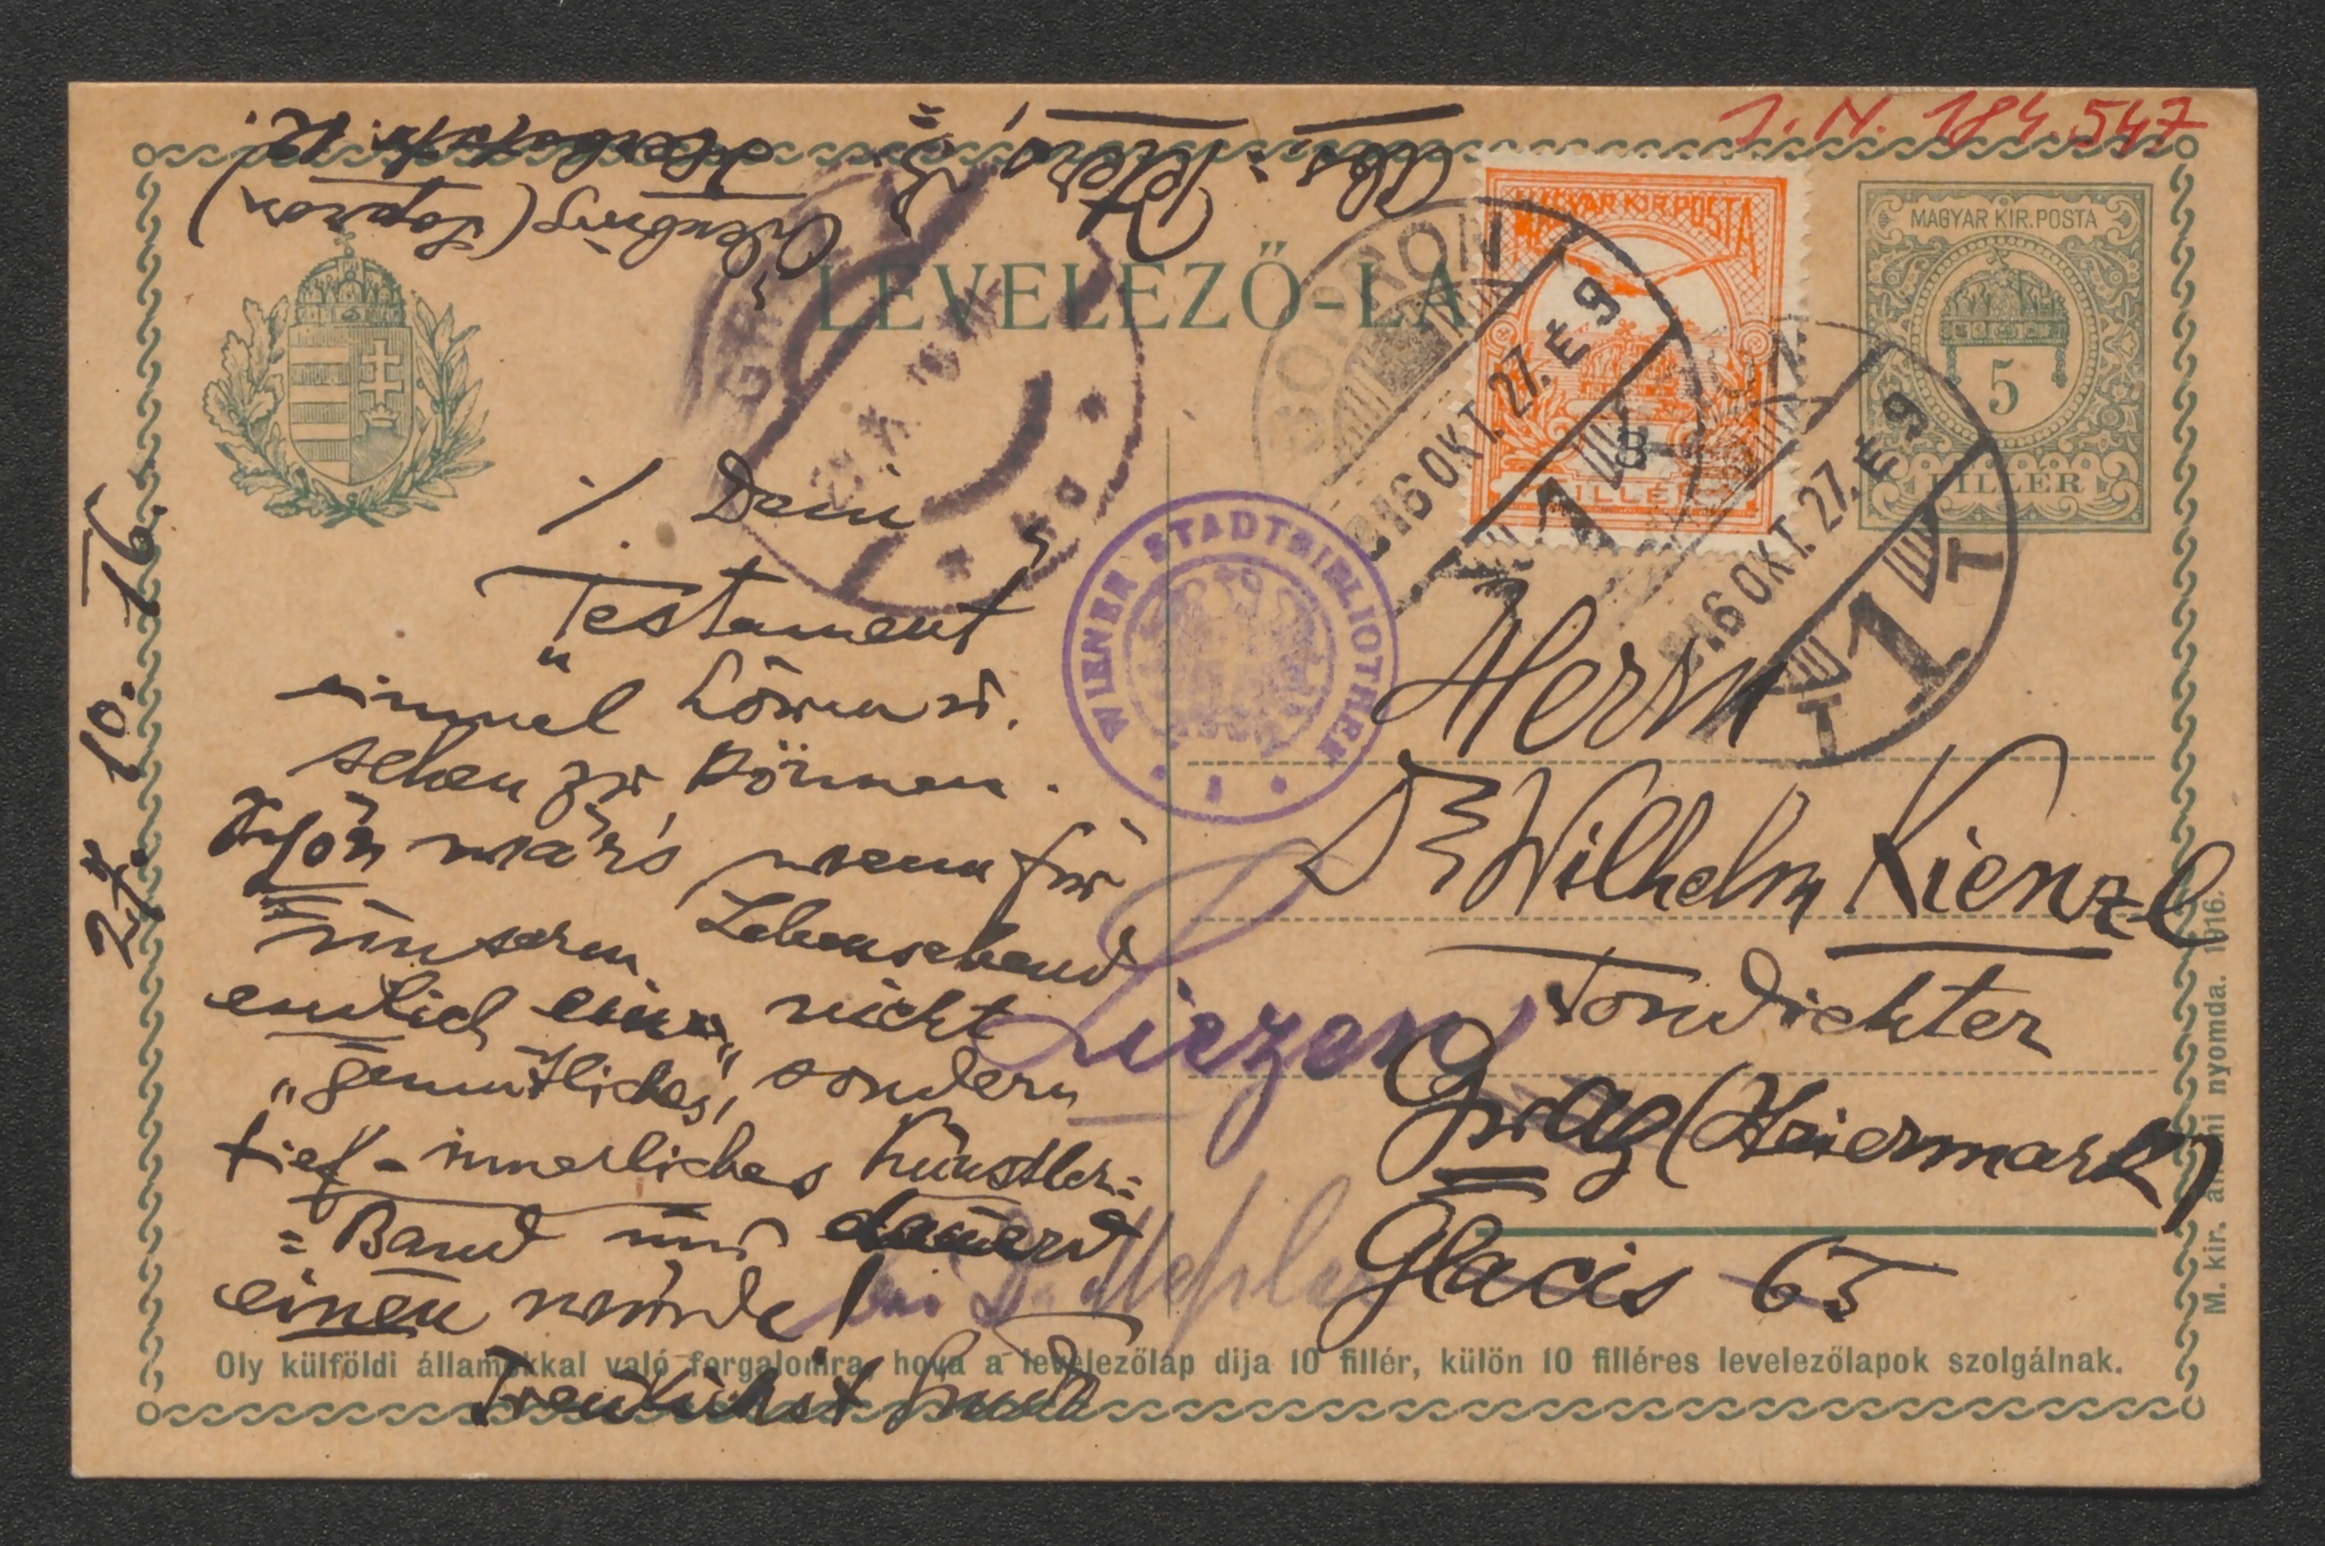 I. N. 184.547
Abs: Peters,
Ödenburg (Sopron)
12.
LEVELEZŐ-LA
MAGYAR KIR. POSTA
5
FILLÉR
MAGYAR KIR. POSTA
FILLÉR
SOPRON
916 OKT. 27. E 9
1
T
916 OKT. 27. E 9
1
T T
GRAZ
WIENER STADTBIBLIOTHEK
27. 10. 16.
/. Dein
"Testament"
einmal hören u.
sehen zu können.
Schön wär's wenn für
unsern Lebensabend
endlich ein, nicht
"gemütliches", sondern
tief-innerliches Künstler=
=Band uns dauernd
einen würde!
Treulichst
Herrn
Dr Wilhelm Kienzl
Tondichter
Graz (Steiermark)
Glacis 65
Liezen
bei Dr
Oly külföldi államokkal való forgalomra, hova a levelezőlap dija 10 fillér, külön 10 filléres levelezőlapok szolgálnak.
M. kir. állami nyomda. 1916.